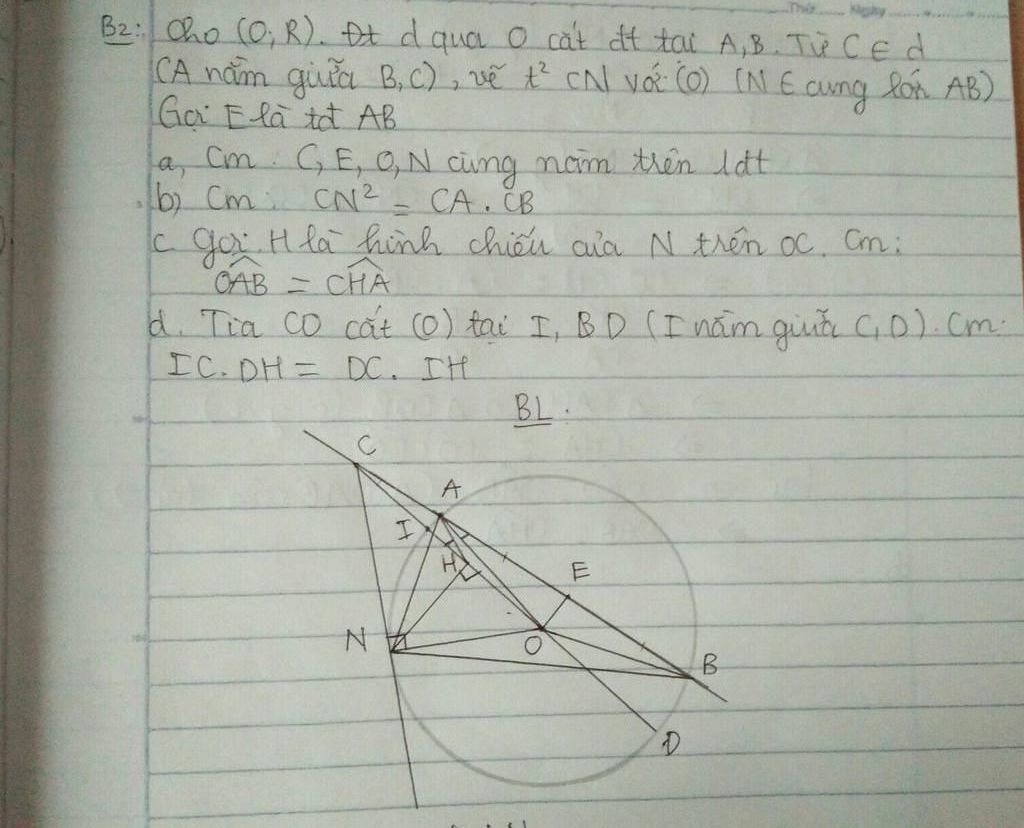 Thứ Ngày
B2: Cho (O, R). Đt d qua O cắt đt tại A, B. Từ C ∈ d
(A nằm giữa B, C), vẽ t² CN với (O) (N ∈ cung lớn AB)
Gọi E là tđ AB
a, Cm: C, E, O, N cùng nằm trên 1 đt
b) Cm: CN² = CA. CB
c Gọi H là hình chiếu của N trên OC. Cm:
OAB = CHA
d. Tia CO cắt (O) tại I, B D (I nằm giữa C, D). Cm:
IC. DH = DC. IH
BL.
C
A
I
H
E
N
O
B
D